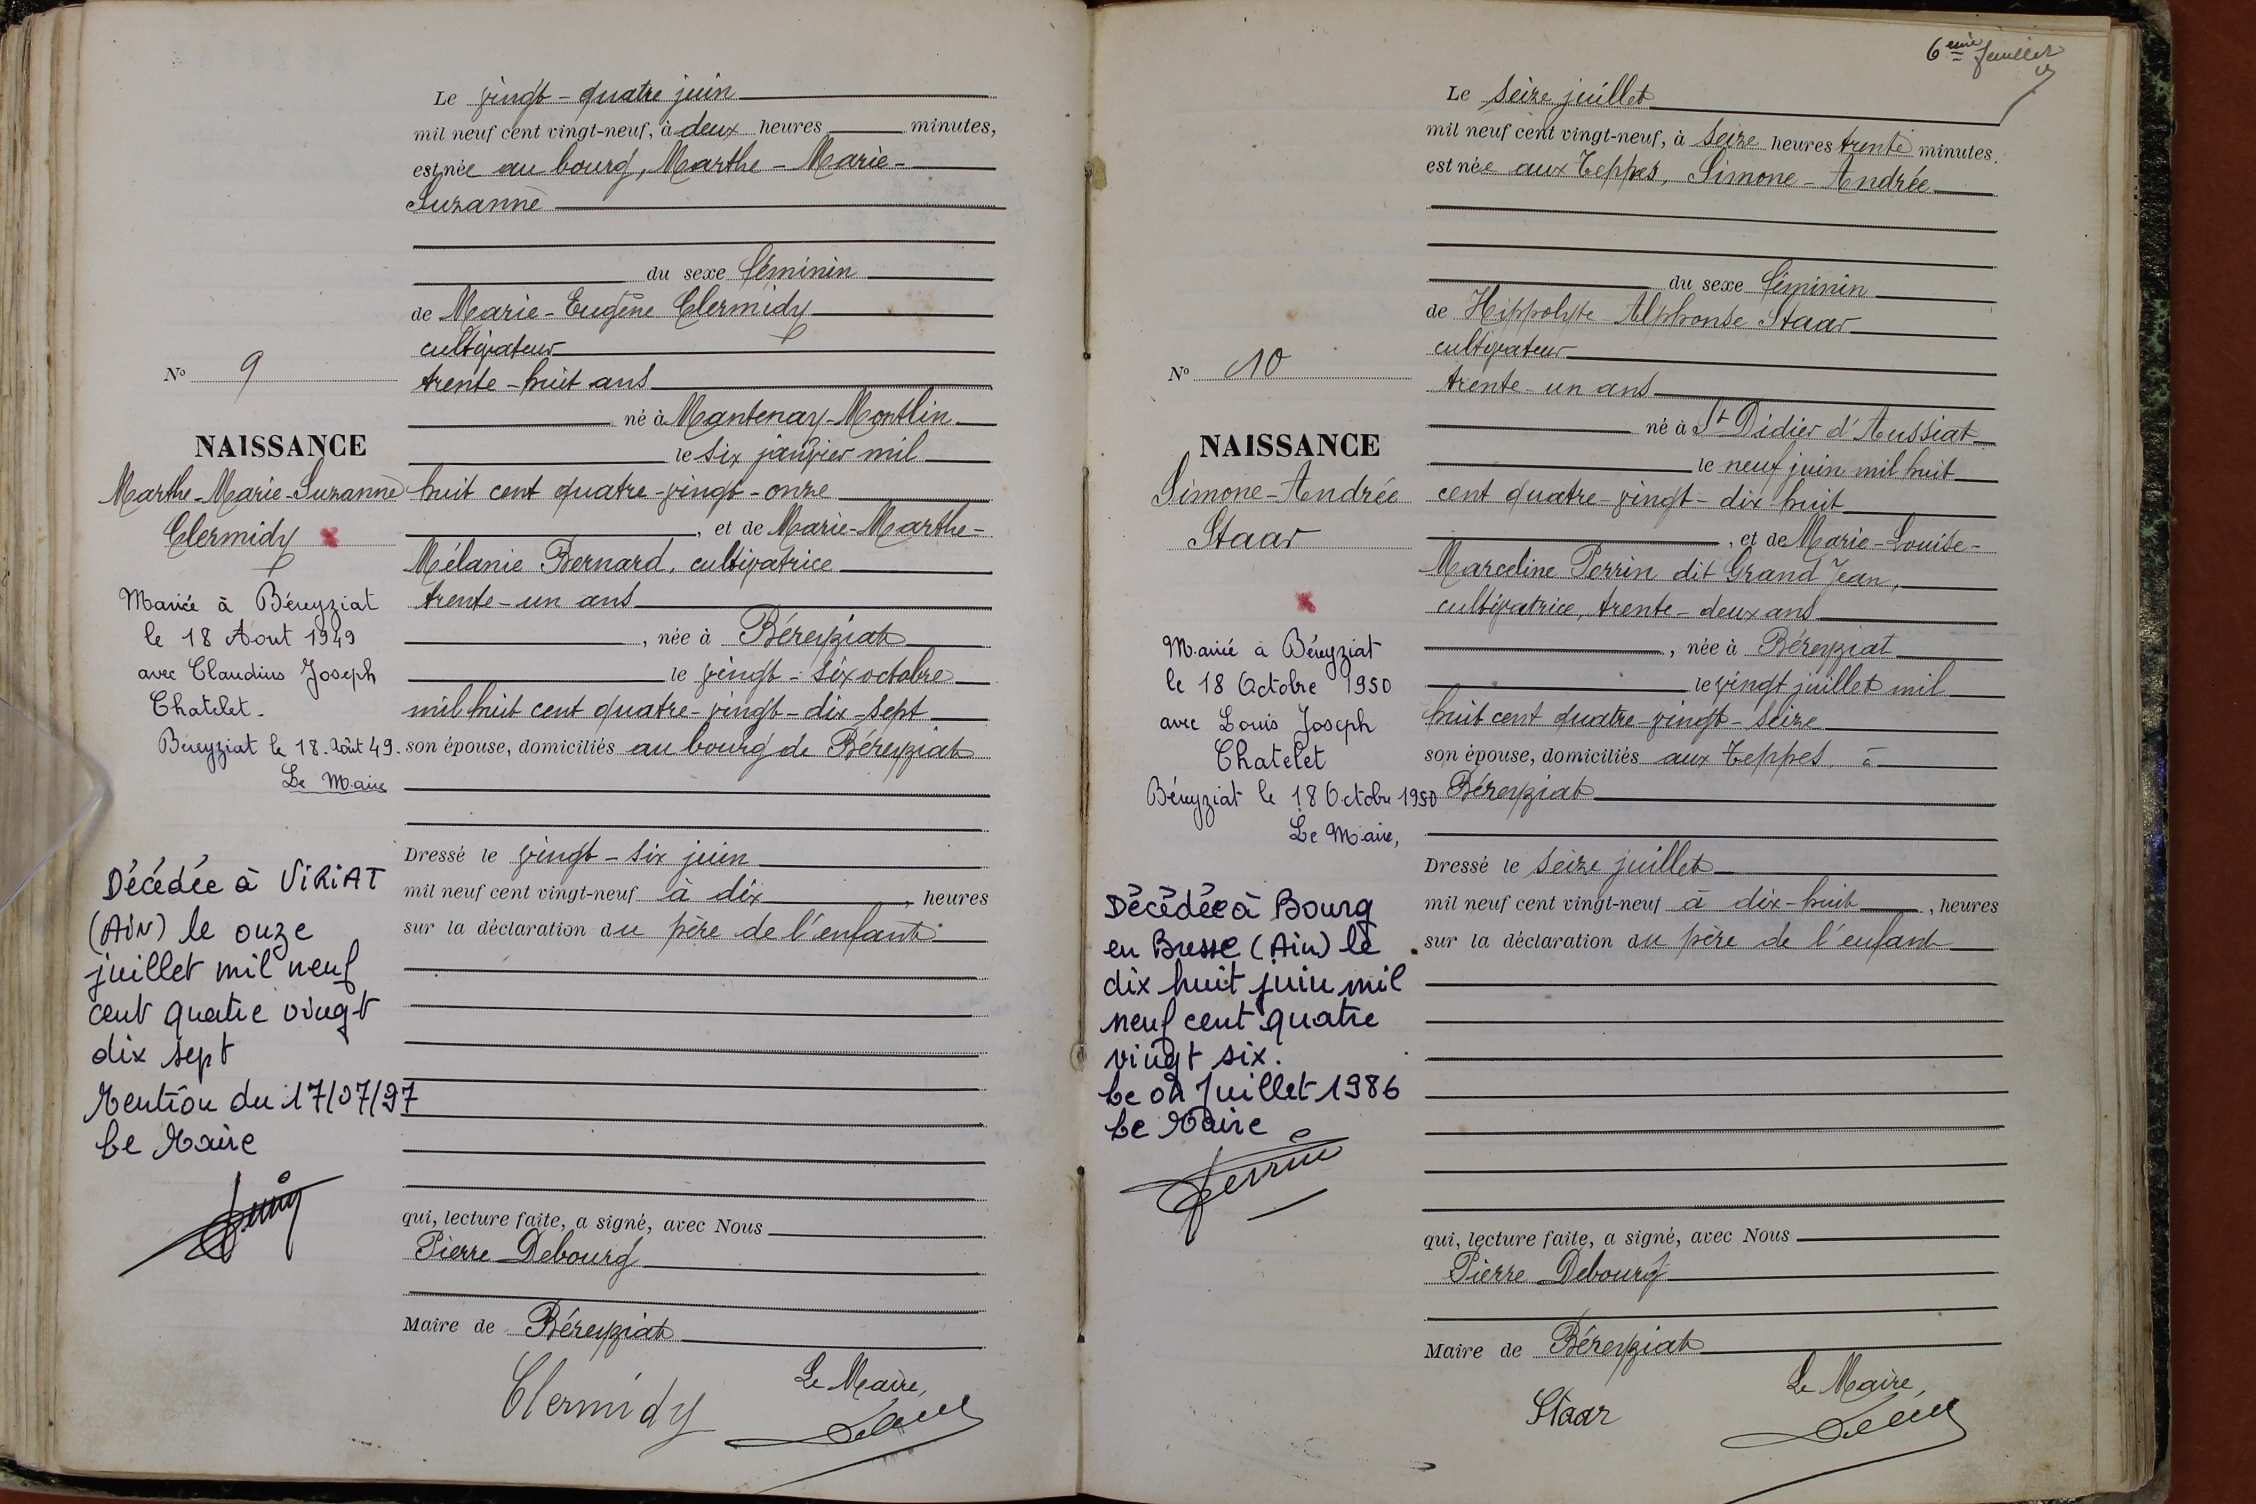 Le vingt-quatre juin
mil neuf cent vingt-neuf, à deux heures minutes,
est née au bourg, Marthe-Marie-
Suzanne
du sexe féminin
de Marie-Eugène Clermidy
cultivateur
trente-huit ans
né à Mantenay-Montlin
le six janvier mil
huit cent quatre-vingt-onze
, et de Marie-Marthe-
Mélanie Bernard, cultivatrice
trente-un ans
, née à Béreyziat
le vingt-six octobre
mil huit cent quatre-vingt-dix-sept
son épouse, domiciliés au bourg de Béreyziat
Dressé le vingt-six juin
mil neuf cent vingt-neuf à dix, heures
sur la déclaration du père de l'enfant
qui, lecture faite, a signé, avec Nous
Pierre Debourg
Maire de Béreyziat
Clermidy
Le Maire,
No 9
NAISSANCE
Marthe-Marie-Suzanne
Clermidy
Mariée à Béreyziat
le 18 Aout 1949
avec Claudius Joseph
Chatelet.
Béreyziat le 18 Août 49.
Le Maire
Décédée à VIRIAT
(AIN) le onze
juillet mil neuf
cent quatre vingt
dix sept
Mention du 17/07/97
Le Maire
6eme feuillet
Le seize juillet
mil neuf cent vingt-neuf, à seize heures trente minutes.
est née aux Teppes, Simone-Andrée
du sexe féminin
de Hippolyte Alphonse Staar
cultivateur
trente-un ans
né à St Didier d'Aussiat
le neuf juin mil huit
cent quatre-vingt-dix huit
, et de Marie-Louise-
Marceline Perrin dit Grand Jean,
cultivatrice, trente-deux ans
, née à Béreyziat
le vingt juillet mil
huit cent quatre-vingt-seize
son épouse, domiciliés aux Teppes à
Béreyziat
Dressé le seize juillet
mil neuf cent vingt-neuf à dix-huit, heures
sur la déclaration du père de l'enfant
qui, lecture faite, a signé, avec Nous
Pierre Debourg
Maire de Béreyziat
Staar
Le Maire,
No 10
NAISSANCE
Simone-Andrée
Staar
Mariée à Béreyziat
le 18 Octobre 1950
avec Louis Joseph
Chatelet
Béreyziat le 18 Octobre 1950
Le Maire,
Décédée à Bourg
en Bresse (Ain) le
dix huit juin mil
neuf cent quatre
vingt six.
Le Juillet 1986
Le Maire
Perrin